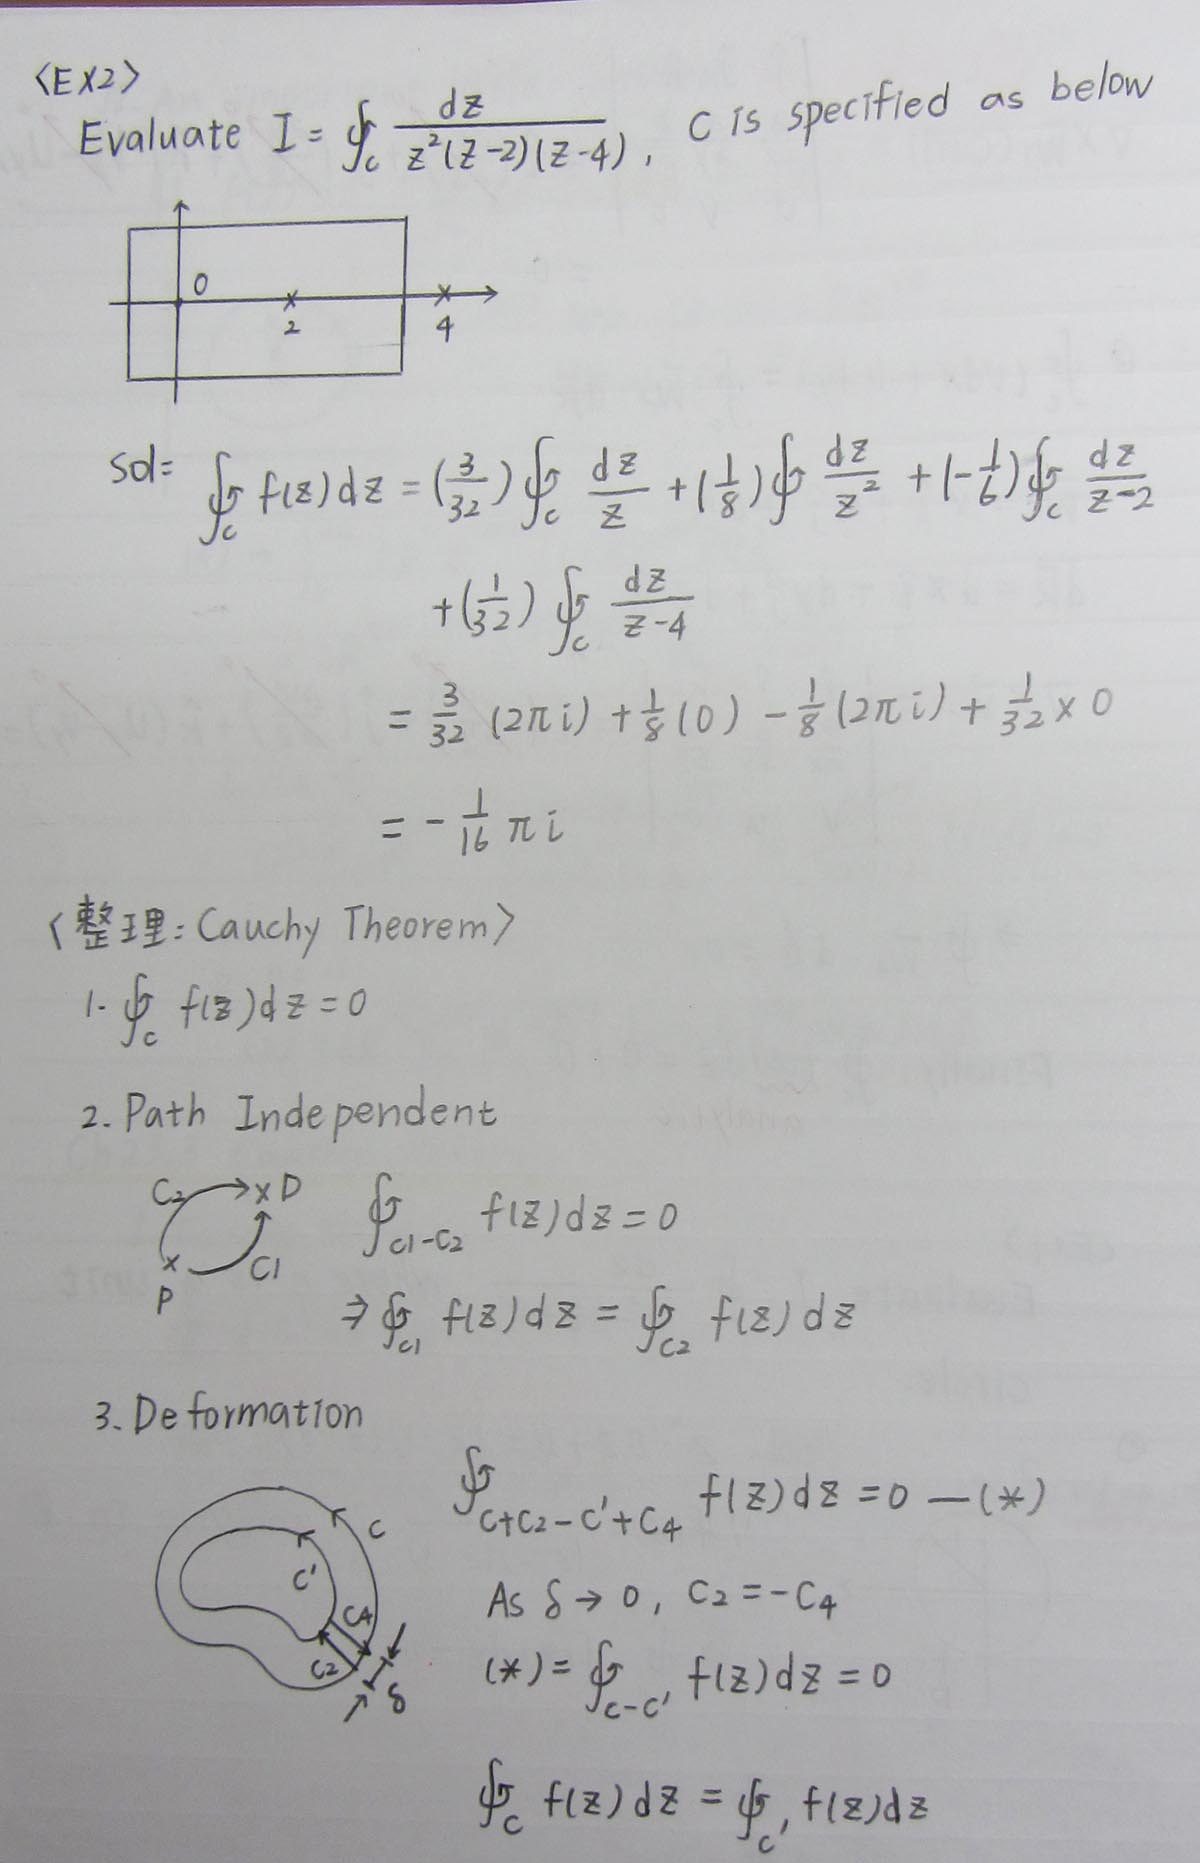 <EX2>
Evaluate I = ∮_C dz / z²(z-2)(z-4), C is specified as below
0
2
4
Sol= ∮_C f(z)dz = (3/32) ∮_C dz/z + (1/8) ∮ dz/z² + (-1/6) ∮_C dz/z-2
+(1/32) ∮_C dz/z-4
= 3/32 (2πi) + 1/8 (0) - 1/8 (2πi) + 1/32 × 0
= - 1/16 πi
<整理: Cauchy Theorem>
1. ∮_C f(z)dz = 0
2. Path Independent
C2 D
C1
P
∮_{C1-C2} f(z)dz = 0
⇒ ∮_{C1} f(z)dz = ∮_{C2} f(z)dz
3. Deformation
C
C'
C4
C2
δ
∮_{C+C2-C'+C4} f(z)dz = 0 —(*)
As δ → 0, C2 = -C4
(*) = ∮_{C-C'} f(z)dz = 0
∮_C f(z)dz = ∮_{C'} f(z)dz